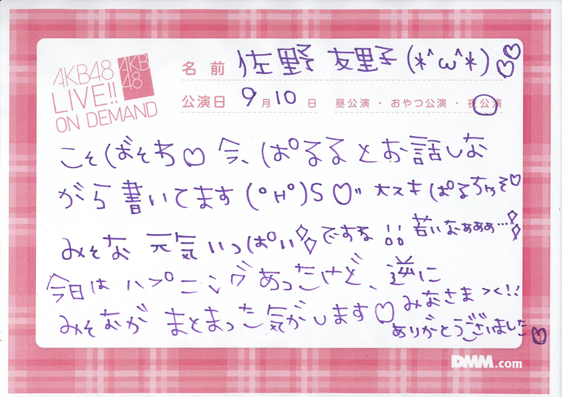 AKB48
LIVE!!
ON DEMAND
AKB
48
名前 佐野 友里子(*^ω^*)♡♡
公演日 9月10日 昼公演・おやつ公演・夜公演
こんばんわ♡ 今、ぱるると お話しな
がら 書いてます(°H°)S♡" 大スキ ぱるちゃん♡
みんな 元気いっぱいですね!! 若いなぁぁぁ…
今日は ハプニングあったけど、逆に
みんなが まとまった気がします♡ みなさま
ありがとうございました♡
DMM.com